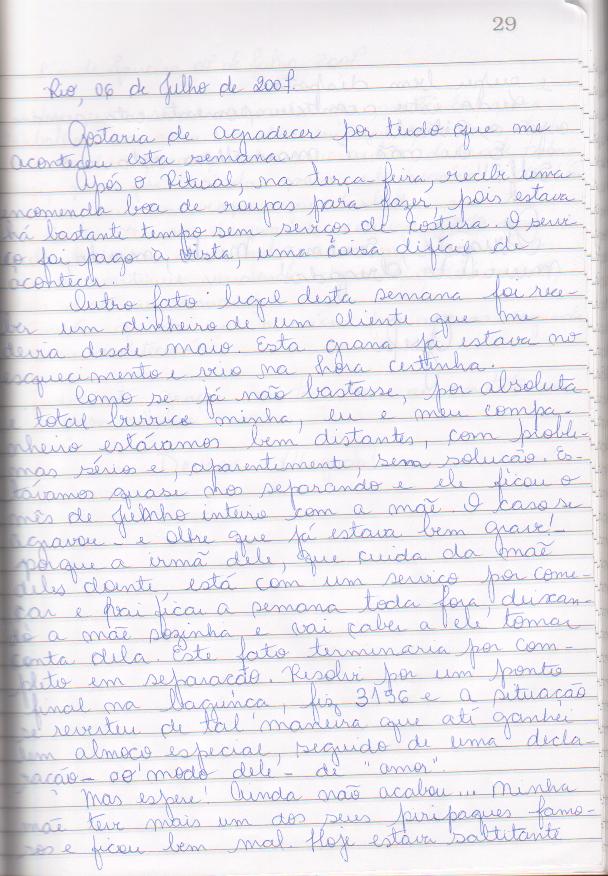 29
Rio, 06 de Julho de 2007.
Gostaria de agradecer por tudo que me
aconteceu esta semana.
Após o Ritual, na terça-feira, recebi uma
encomenda boa de roupas para fazer, pois estava
há bastante tempo sem serviços de costura. O servi-
ço foi pago à vista, uma coisa difícil de
acontecer.
Outro fato legal desta semana foi rece-
ber um dinheiro de um cliente que me
devia desde maio. Esta grana já estava no
esquecimento e veio na hora certinha.
Como se já não bastasse, por absoluta
e total burrice minha, eu e meu compa-
nheiro estávamos bem distantes, com proble-
mas sérios e, aparentemente, sem solução. Es-
távamos quase nos separando e ele ficou o
mês de junho inteiro com a mãe. O caso se
agravou - e olhe que já estava bem grave! -
porque a irmã dele, que cuida da mãe
deles doente está com um serviço por come-
çar e vai ficar a semana toda fora, deixan-
do a mãe sozinha e vai caber a ele tomar
conta dela. Este fato terminaria por com-
pleto em separação. Resolvi por um ponto
final na , fiz 3196 e a situação
se reverteu de tal maneira que até ganhei
um almoço especial, seguido de uma decla-
ração - ao modo dele - de "amor".
Mas espere! Ainda não acabou... Minha
mãe teve mais um dos seus piripaques famo-
sos e ficou bem mal. Hoje estava saltitante